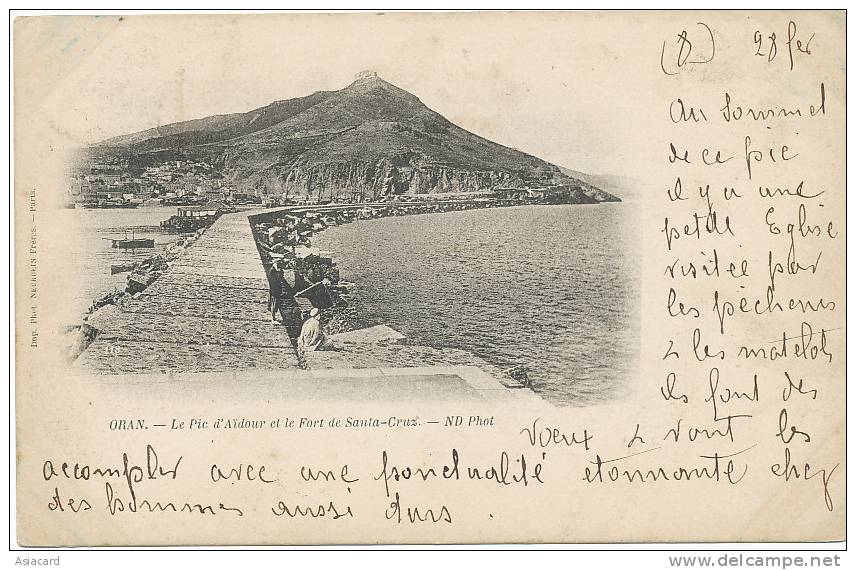 (8) 28 fev
Au Sommet
de ce pic
il y a une
petite Eglise
visitée par
les pêcheurs
& les matelots
ils font des
voeux & vont les
accomplir avec une ponctualité etonnante chez
des hommes aussi durs.
ORAN. — Le Pic d'Aïdour et le Fort de Santa-Cruz. — ND Phot
Imp. Phot. NEURDEIN Frères. — Paris.
Asiacard
www.delcampe.net